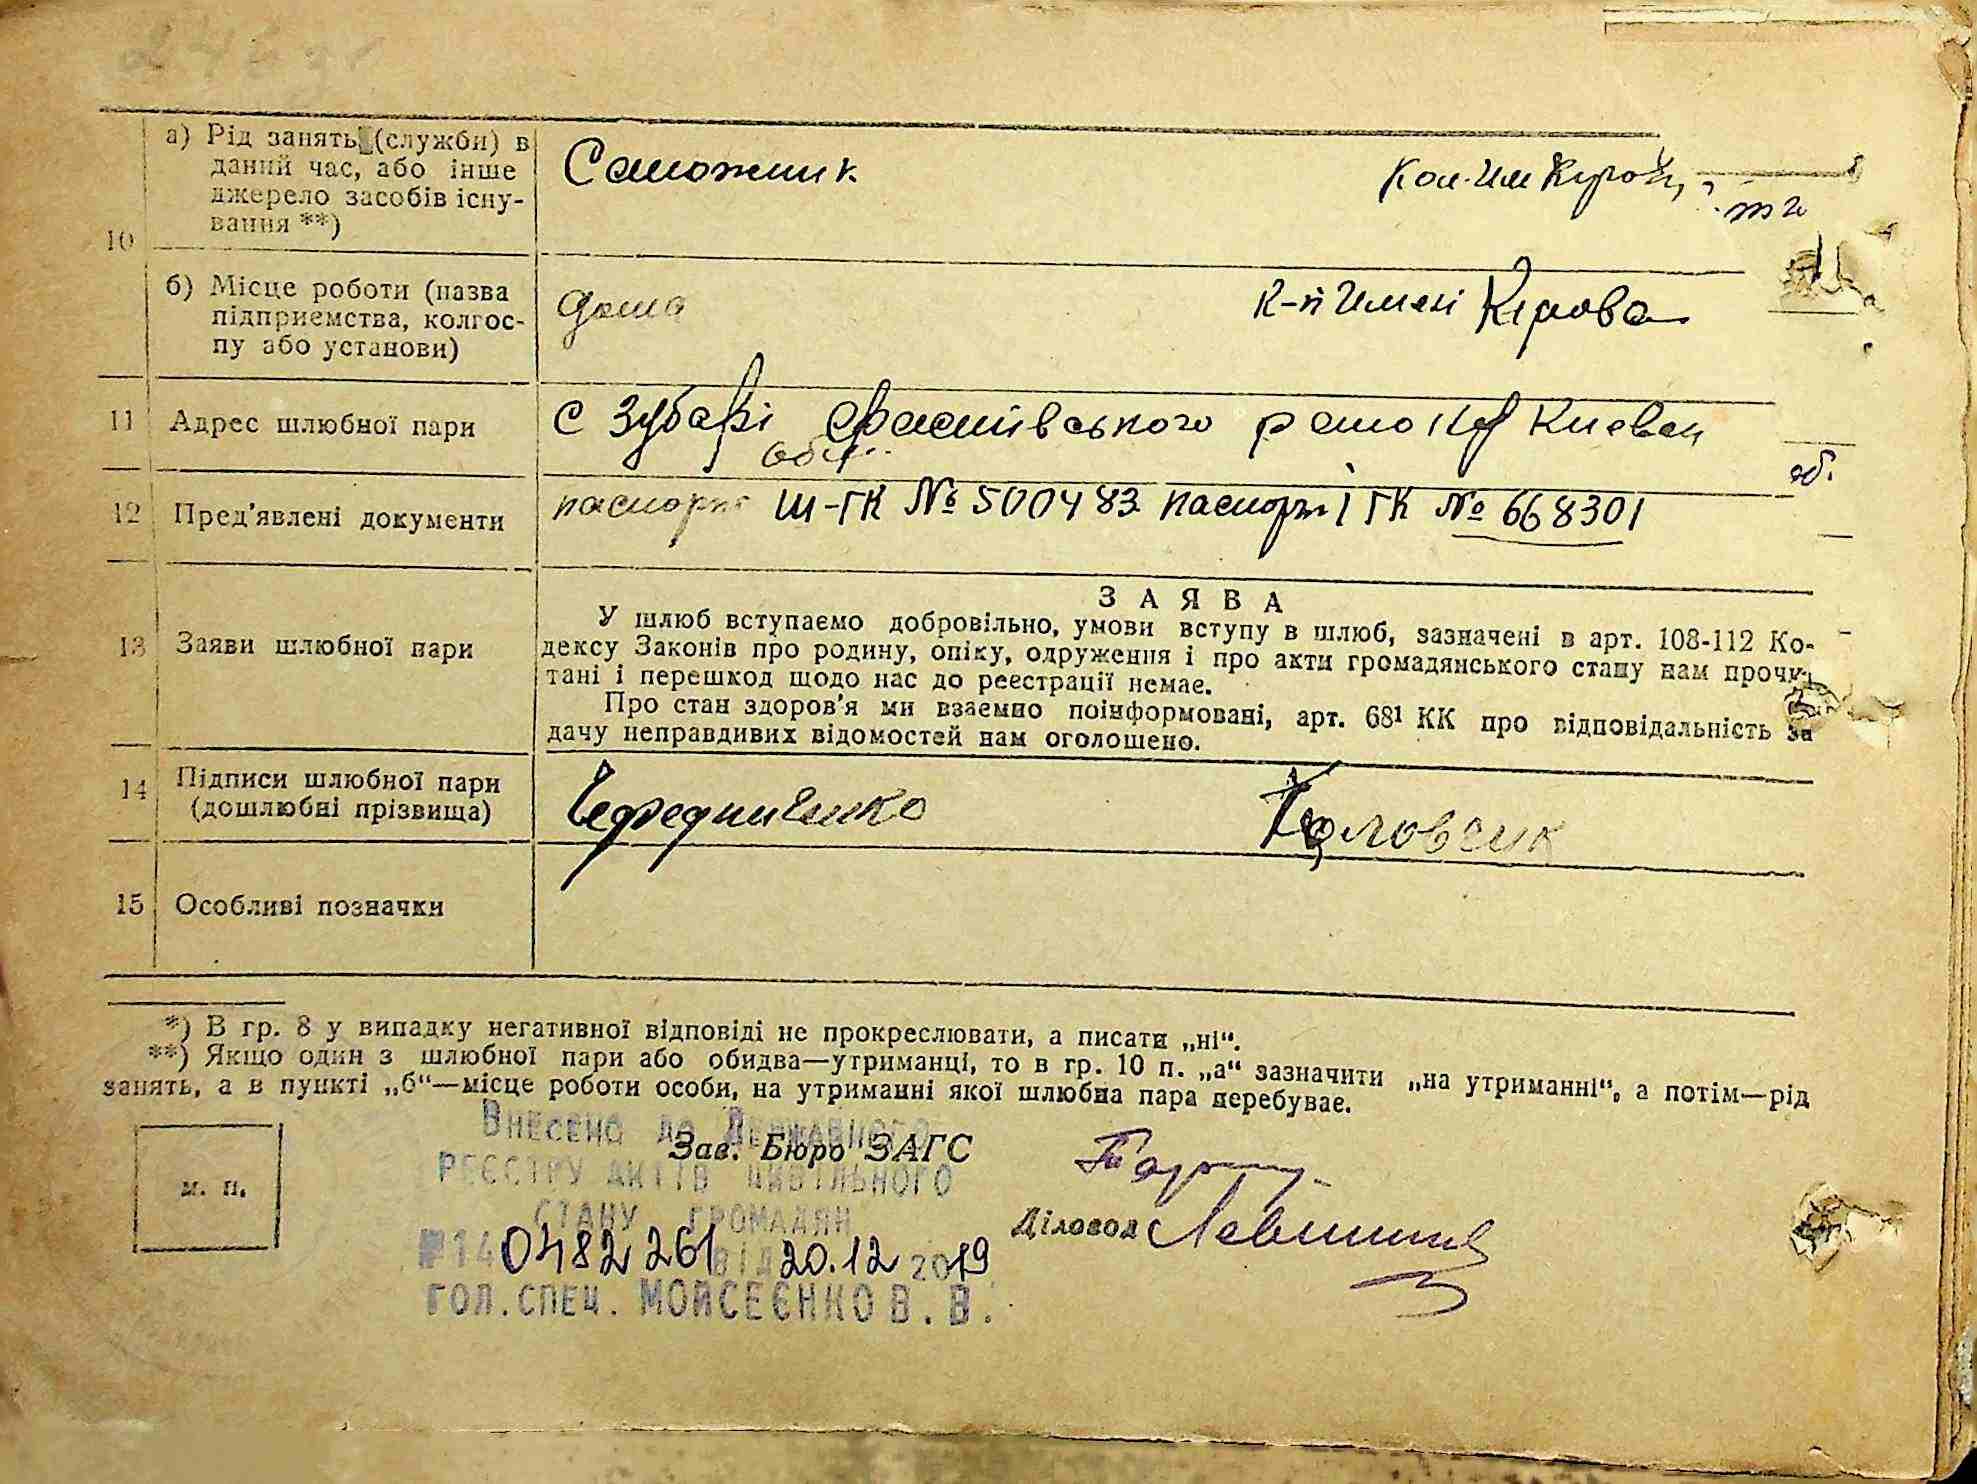 10
а) Рід занять (служби) в
даний час, або інше
джерело засобів існу-
вання **)
Сапожник
б) Місце роботи (назва
підприємства, колгос-
пу або установи)
дома
к-п Імені Кірова
11 Адрес шлюбної пари
с Зубарі Фастівського району Киевск
обл.
12 Пред'явлені документи
паспорт Ш-ГК № 500483 паспорт І ГК № 668301
13 Заяви шлюбної пари
ЗАЯВА
У шлюб вступаємо добровільно, умови вступу в шлюб, зазначені в арт. 108-112 Ко-
дексу Законів про родину, опіку, одруження і про акти громадянського стану нам прочи-
тані і перешкод щодо нас до реєстрації немає.
Про стан здоров'я ми взаємно поінформовані, арт. 68¹ КК про відповідальність за
дачу неправдивих відомостей нам оголошено.
14 Підписи шлюбної пари
(дошлюбні прізвища)
Чередниченко
15 Особливі позначки
*) В гр. 8 у випадку негативної відповіді не прокреслювати, а писати „ні“.
**) Якщо один з шлюбної пари або обидва—утриманці, то в гр. 10 п. „а“ зазначити „на утриманні“, а потім—рід
занять, а в пункті „б“—місце роботи особи, на утриманні якої шлюбна пара перебуває.
Внесено до Державного
Зав. Бюро ЗАГС
реєстру актів цивільного
м. п.
стану громадян
Діловод
№140482261 від 20.12 2019
гол.спец. Мойсеєнко В.В.